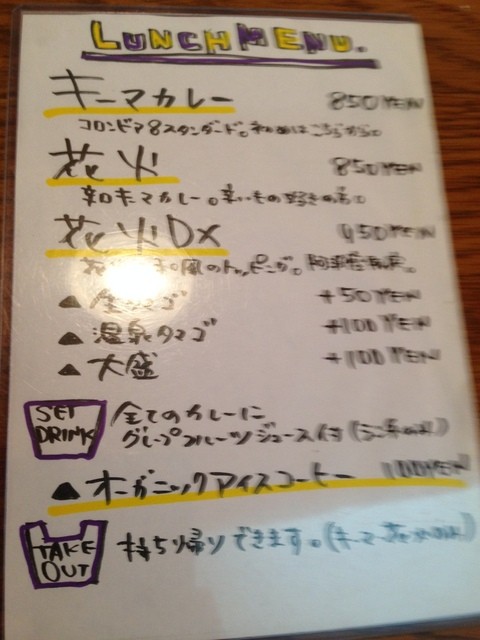 LUNCH MENU.
キーマカレー 850YEN
コロンボア8スタンダード。初めはこちらから。
花火 850YEN
辛口キーマカレー。辛いもの好きの方。
花火DX 950YEN
▲ 生タマゴ +50YEN
▲ 温泉タマゴ +100YEN
▲ 大盛 +100YEN
SET DRINK
全てのカレーに
グレープフルーツジュース付
▲ オーガニックアイスコーヒー 100YEN
TAKE OUT
持ち帰りできます。